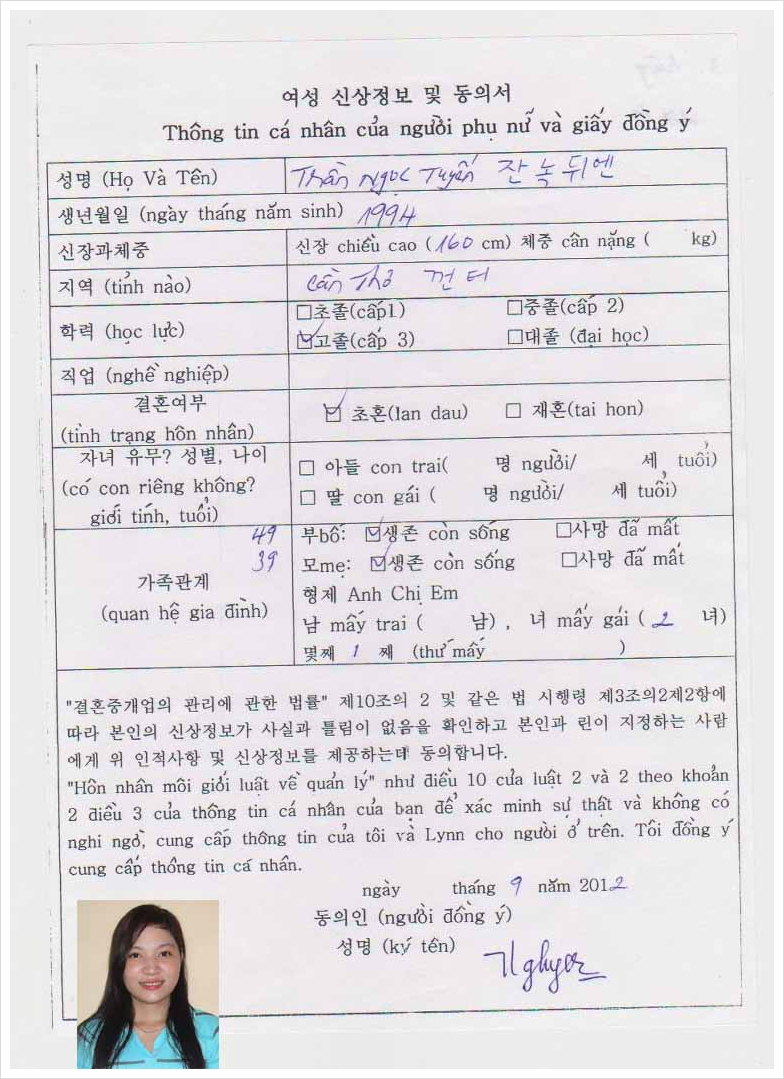 여성 신상정보 및 동의서
Thông tin cá nhân của người phụ nữ và giấy đồng ý
성명 (Họ Và Tên) Trần Ngọc Tuyến 잔 녹 뒤엔
생년월일 (ngày tháng năm sinh) 1994
신장과체중 신장 chiều cao (160 cm) 체중 cân nặng ( kg)
지역 (tỉnh nào) Cần Thơ 껀 터
학력 (học lực) □초졸(cấp1) □중졸(cấp 2)
☑고졸(cấp 3) □대졸 (đại học)
직업 (nghề nghiệp)
결혼여부
(tình trạng hôn nhân)
☑ 초혼(lan dau) □ 재혼(tai hon)
자녀 유무? 성별, 나이
(có con riêng không?
giới tính, tuổi)
□ 아들 con trai( 명 người/ 세 tuổi)
□ 딸 con gái ( 명 người/ 세 tuổi)
49
39
가족관계
(quan hệ gia đình)
부bố: ☑생존 còn sống □사망 đã mất
모mẹ: ☑생존 còn sống □사망 đã mất
형제 Anh Chị Em
남 mấy trai ( 남) , 녀 mấy gái ( 2 녀)
몇째 1 째 (thứ mấy )
"결혼중개업의 관리에 관한 법률" 제10조의 2 및 같은 법 시행령 제3조의2제2항에
따라 본인의 신상정보가 사실과 틀림이 없음을 확인하고 본인과 린이 지정하는 사람
에게 위 인적사항 및 신상정보를 제공하는데 동의합니다.
"Hôn nhân môi giới luật về quản lý" như điều 10 của luật 2 và 2 theo khoản
2 điều 3 của thông tin cá nhân của bạn để xác minh sự thật và không có
nghi ngờ, cung cấp thông tin của tôi và Lynn cho người ở trên. Tôi đồng ý
cung cấp thông tin cá nhân.
ngày tháng 9 năm 2012
동의인 (người đồng ý)
성명 (ký tên)